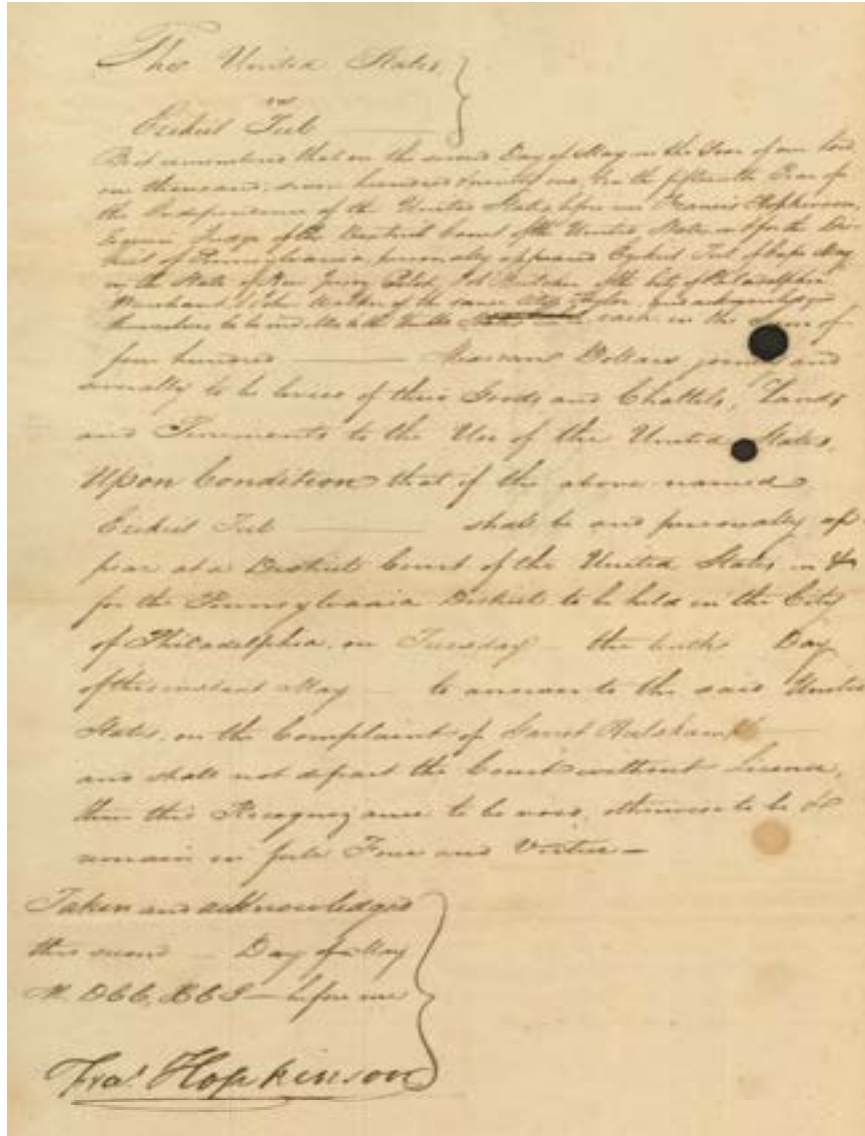 The United States
vs
Ezekiel Teel
Be it remembered that on the second Day of May in the Year of our Lord
one thousand seven hundred & ninety one, & in the fifteenth Year of
the Independence of the United States, before me Francis Hopkinson
Esquire Judge of the District Court of the United States in & for the Dis-
trict of Pennsylvania, personally appeared Ezekiel Teel of Cape May
in the State of New Jersey Pilot, Job Butcher of the City of Philadelphia
Merchant & John Walker of the same Taylor, and acknowledged
themselves to be indebted to the United States each in the Sum of
four hundred Dollars jointly and
severally to be levied of their Goods and Chattels, Lands
and Tenements to the Use of the United States,
Upon Condition that if the above named
Ezekiel Teel shall be and personally ap
pear at a District Court of the United States in &
for the Pennsylvania District to be held in the City
of Philadelphia, on Tuesday the tenth Day
of this instant May to answer to the said United
States, on the Complaint of
and shall not depart the Court without Licence,
then this Recognizance to be void, otherwise to be &
remain in full Force and Virtue —
Taken and acknowledged
this second Day of May
M.DCC.XCI — before me
Fra.s Hopkinson